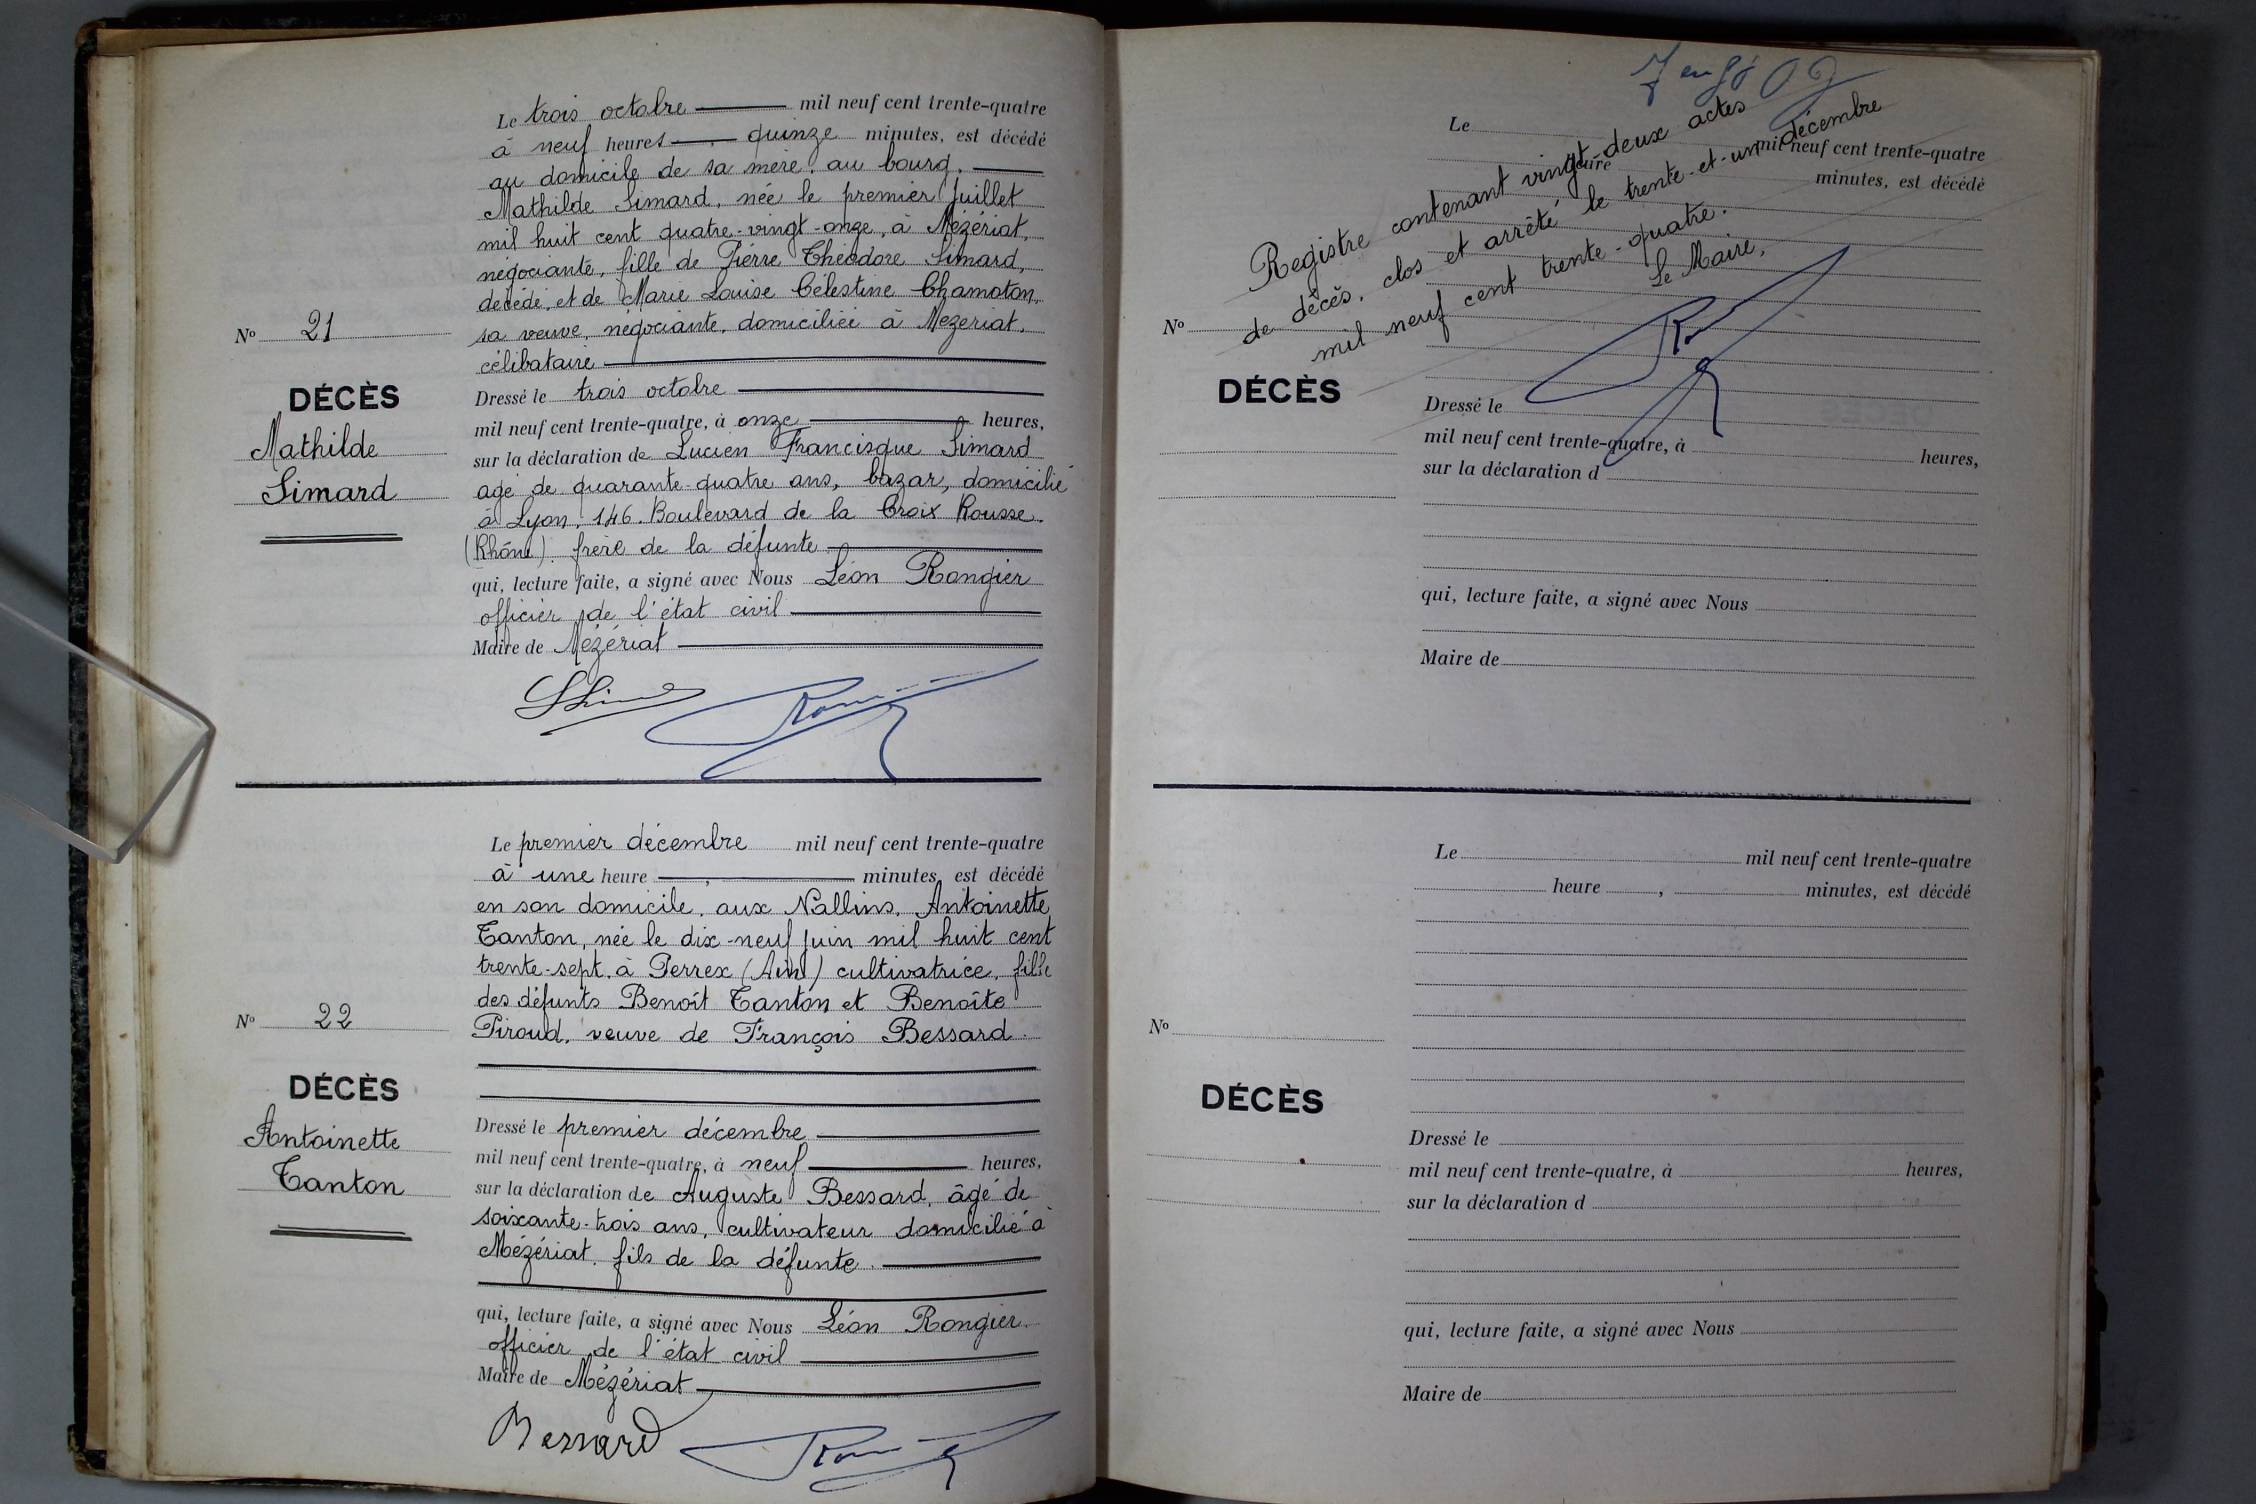 Le trois octobre mil neuf cent trente-quatre
à neuf heures, quinze minutes, est décédé
au domicile de sa mère, au bourg,
Mathilde Simard, née le premier Juillet
mil huit cent quatre-vingt-onze, à Mézériat,
négociante, fille de Pierre Théodore Simard,
décédé, et de Marie Louise Célestine Chamoton,
sa veuve, négociante, domiciliée à Mézériat.
célibataire
Dressé le trois octobre
mil neuf cent trente-quatre, à onze heures,
sur la déclaration de Lucien Francisque Simard
âgé de quarante-quatre ans, bazar, domicilié
à Lyon, 146. Boulevard de la Croix Rousse.
(Rhône). frère de la défunte
qui, lecture faite, a signé avec Nous Léon Rongier
officier de l'état civil
Maire de Mézériat
N° 21
DÉCÈS
Mathilde
Simard
Le premier décembre mil neuf cent trente-quatre
à une heure, minutes, est décédé
en son domicile, aux Nallins, Antoinette
Tanton, née le dix-neuf juin mil huit cent
trente-sept, à Perrex (Ain) cultivatrice, fille
des défunts Benoît Tanton et Benoîte
Piroud, veuve de François Bessard.
Dressé le premier décembre
mil neuf cent trente-quatre, à neuf heures,
sur la déclaration de Auguste Bessard, âgé de
soixante-trois ans, cultivateur domicilié à
Mézériat, fils de la défunte.
qui, lecture faite, a signé avec Nous Léon Rongier
officier de l'état civil
Maire de Mézériat
Bessard
N° 22
DÉCÈS
Antoinette
Tanton
Le mil neuf cent trente-quatre
heure minutes, est décédé
Registre contenant vingt-deux actes
de décès, clos et arrêté le trente-et-un décembre
mil neuf cent trente-quatre.
Le Maire,
N°
DÉCÈS
Dressé le
mil neuf cent trente-quatre, à heures,
sur la déclaration d
qui, lecture faite, a signé avec Nous
Maire de
Le mil neuf cent trente-quatre
heure, minutes, est décédé
N°
DÉCÈS
Dressé le
mil neuf cent trente-quatre, à heures,
sur la déclaration d
qui, lecture faite, a signé avec Nous
Maire de